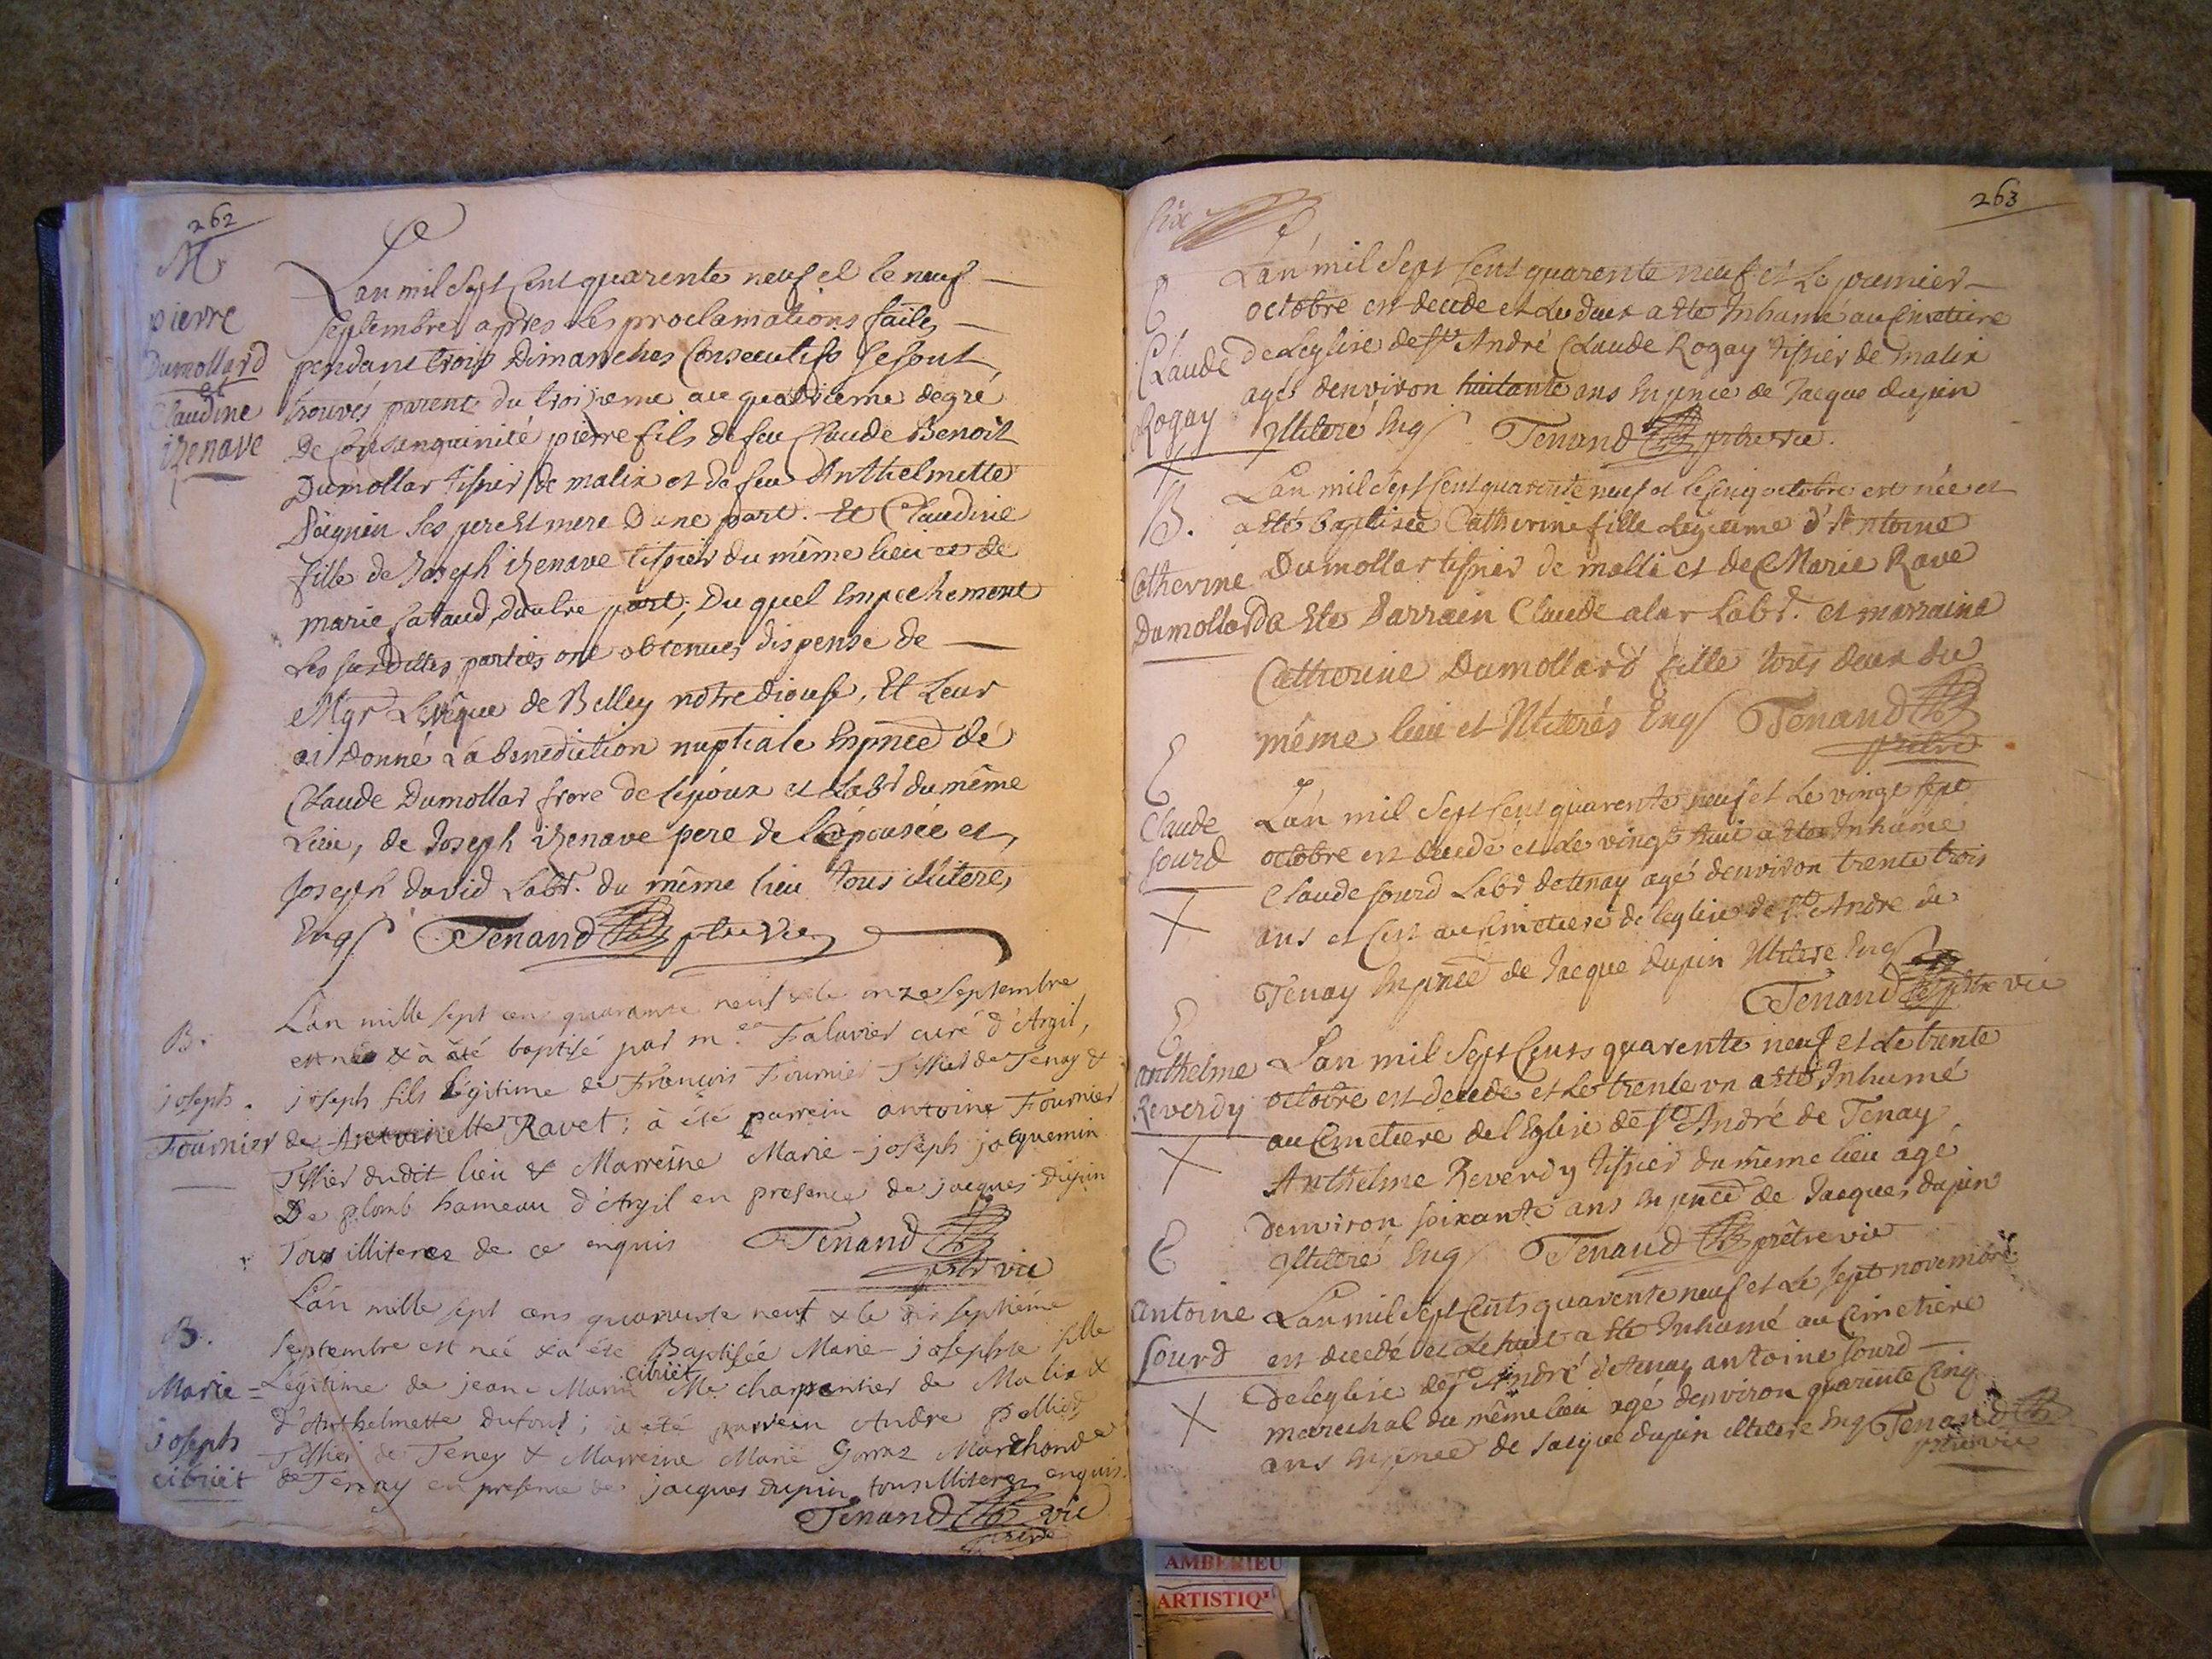 262
M
pierre
Dumollard
et
Claudine
izenave
L'an mil sept cent quarente neuf et le neuf
septembre apres les proclamations faites
pendant trois Dimanches Consecutifs se sont
trouvés parents du troizieme au quatrieme degré
De Consanguinité pierre fils de feu Claude Benoit
Dumollar tissier de malix et de feu Anthelmette
ses pere et mere D'une part. Et Claudine
fille de Joseph izenave tissier du même lieu et de
marie D'autre part; Du quel Empechement
les susdittes parties ont obtenues dispense de
Mgr L'evêque de Belley notre diocese, Et Leur
ai donné La benediction nuptiale En pnce de
Claude Dumollar frere de l'epoux et Labr du même
Lieu, de Joseph izenave pere de l'épousée et
Joseph david Labr. du même lieu tous illiteres
Enqs Tenand ptre vic
B.
joseph
Fournier
L'an mille sept cens quarante neuf & le onze septembre
est née & à été baptisé par m.re Falavier curé d'Argil,
joseph fils légitime de François Fournier Tissier de Tenay &
de Antoinette Ravet; à été parrein antoine Fournier
Tissier dudit lieu & Marreine Marie-joseph jacquemin
De plomb hameau d'Argil en presence de jacques Dupin
Tous illiteres de ce enquis Tenand
ptre vic
B.
Marie=
joseph
cibiiet
L'an mille sept cens quarante neuf & le dix septiéme
septembre est née & a été Baptisée Marie-josephte fille
cibiiet
Légitime de jean-Marie Me charpentier de Malix &
d'Anthelmette Dufour; à été parrein Andre
Tissier de Teney & Marreine Marie Gorraz Marchande
de Tenay en presence de jacques Dupin tous illiteres enquis.
Tenand vic
prêtre
263
Six
E
Claude
Rogay
L'an mil sept cent quarente neuf et Le premier
octobre est decede et le deux a ete Inhumé au Cimetiere
de L'eglise de St André Claude Rogay tissier de malix
agé denviron huitante ans En pnce de Jacque dupin
Illiteré Enqs Tenand ptre vic.
B.
Catherine
Dumollard
L'an mil sept cent quarente neuf et le cinq octobre est née et
a eté baptisée Catherine fille legitime d'Antoine
Dumollar tissier de malli et de Marie Rave
a ete Parrain Claude alar Labr. et marraine
Catherine Dumollard fille tous deux du
même lieu et Illiterés Enqs Tenand
prêtre
E
Claude
sourd
L'an mil sept cent quarente neuf et Le vingt sept
octobre est decedé et le vingt huit a ete Inhumé
Claude sourd Labr de tenay agé denviron trente trois
ans et Cest au Cimetiere de leglise de St Andre de
Tenay En pnce de Jacque dupin Illitere Enqs
Tenand ptre vic
E
anthelme
Reverdy
L'an mil sept Cents quarente neuf et Le trente
octobre est decede et Le trente un a eté Inhumé
au Cimetiere de l'Eglise de St André de Tenay
Anthelme Reverdy tissier du même lieu agé
denviron soixante ans En pnce de Jacques dupin
Illiteré Enqs Tenand prêtre vic
E
antoine
sourd
L'an mil sept Cents quarente neuf et Le sept novembre
est decedé et Le huit a ete Inhumé au Cimetiere
de leglise de St André d'tenay antoine sourd
marechal du même lieu agé denviron quarente Cinq
ans En pnce de Jacque dupin illitere Enqs Tenand
ptre vic
AMBERIEU
ARTISTIQU